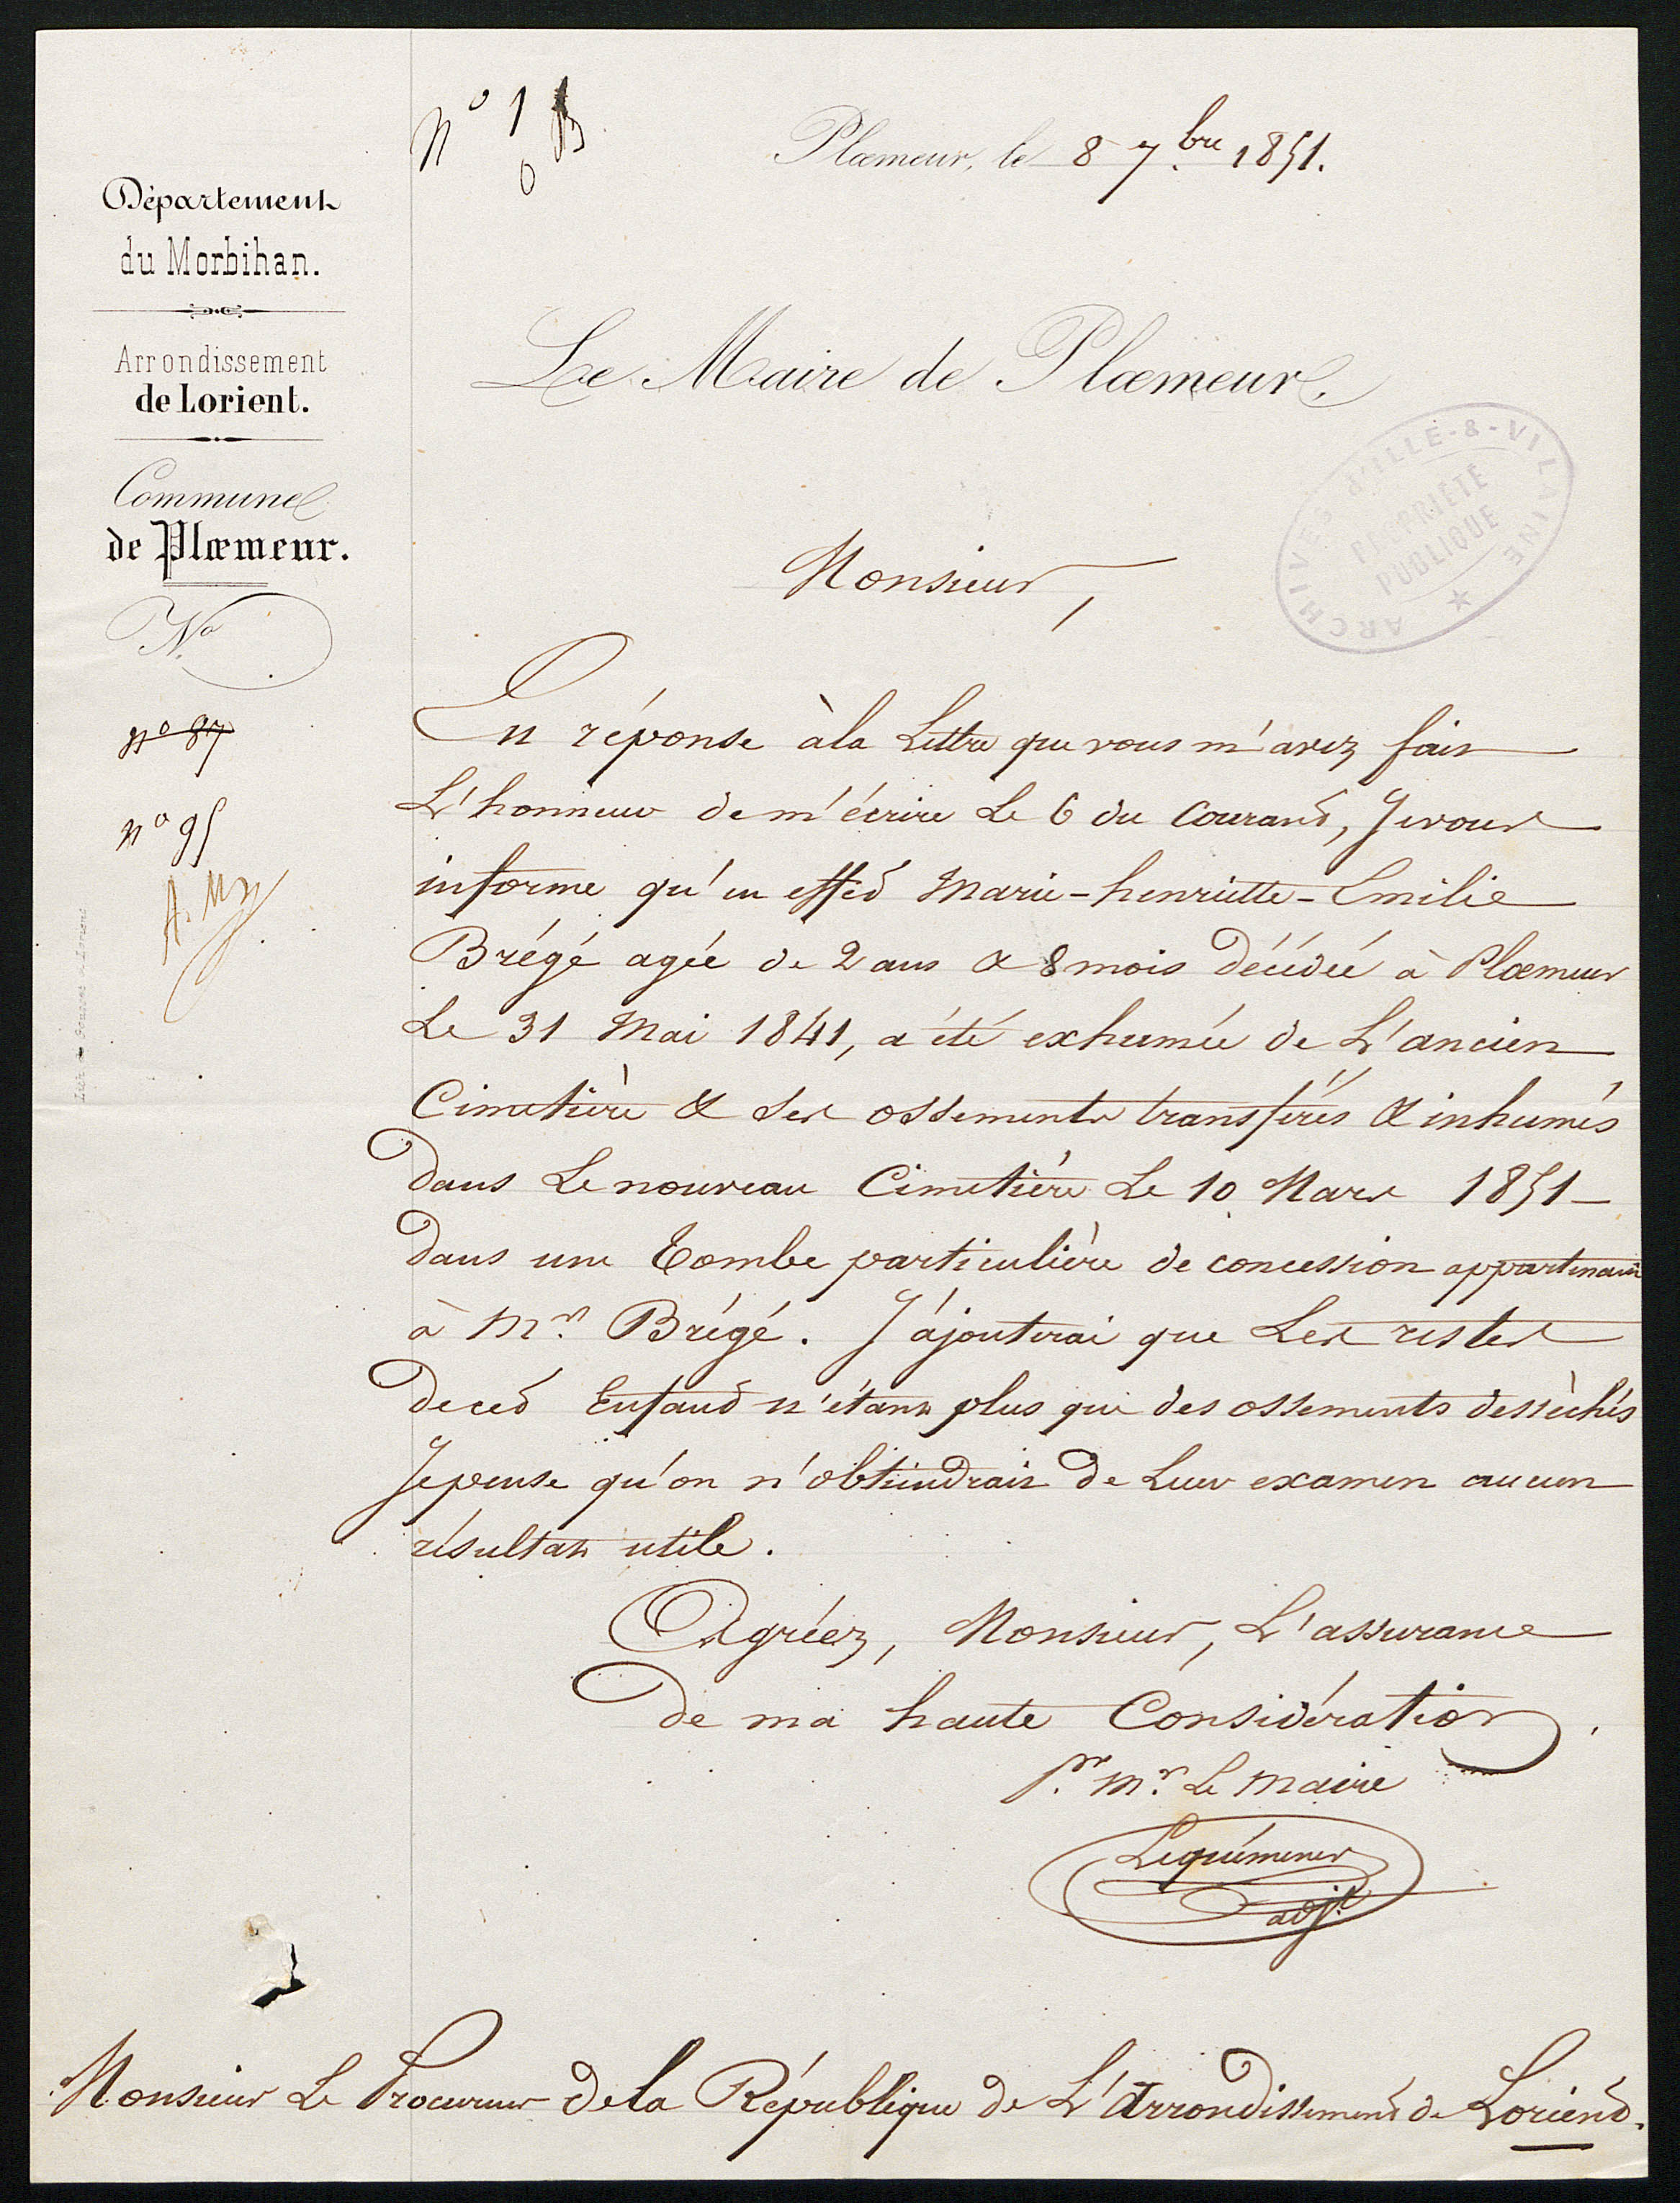 Département
du Morbihan.
Arrondissement
de Lorient.
Commune
de Plœmeur.
N.o
n° 87
n° 95
N° 1
Plœmeur, le 8 7.bre 1851.
Le Maire de Plœmeur,
ARCHIVES D'ILLE-&-VILAINE
PROPRIÉTÉ
PUBLIQUE
Monsieur,
En réponse à la Lettre que vous m'avez fait
L'honneur de m'écrire Le 6 du Courant, Je vous
informe qu'en effet Marie-henriette-Emilie
Brégé agée de 2 ans & 8 mois décédée à Plœmeur
Le 31 Mai 1841, a été exhumée de L'ancien
Cimetière & ses ossements transférés & inhumés
dans Le nouveau Cimetière Le 10 Mars 1851 -
dans une tombe particulière de concession appartenant
à Mr. Brégé. J'ajouterai que Les restes
de cet Enfant n'étant plus que des ossements dessèchés
Je pense qu'on n'obtiendrait de Leur examen aucun
résultat utile.
Agréez, Monsieur, L'assurance
de ma haute Considération.
Pr. Mr. Le Maire
Lequémener
adjt
Monsieur Le Procureur de la République de L'Arrondissement de Lorient.